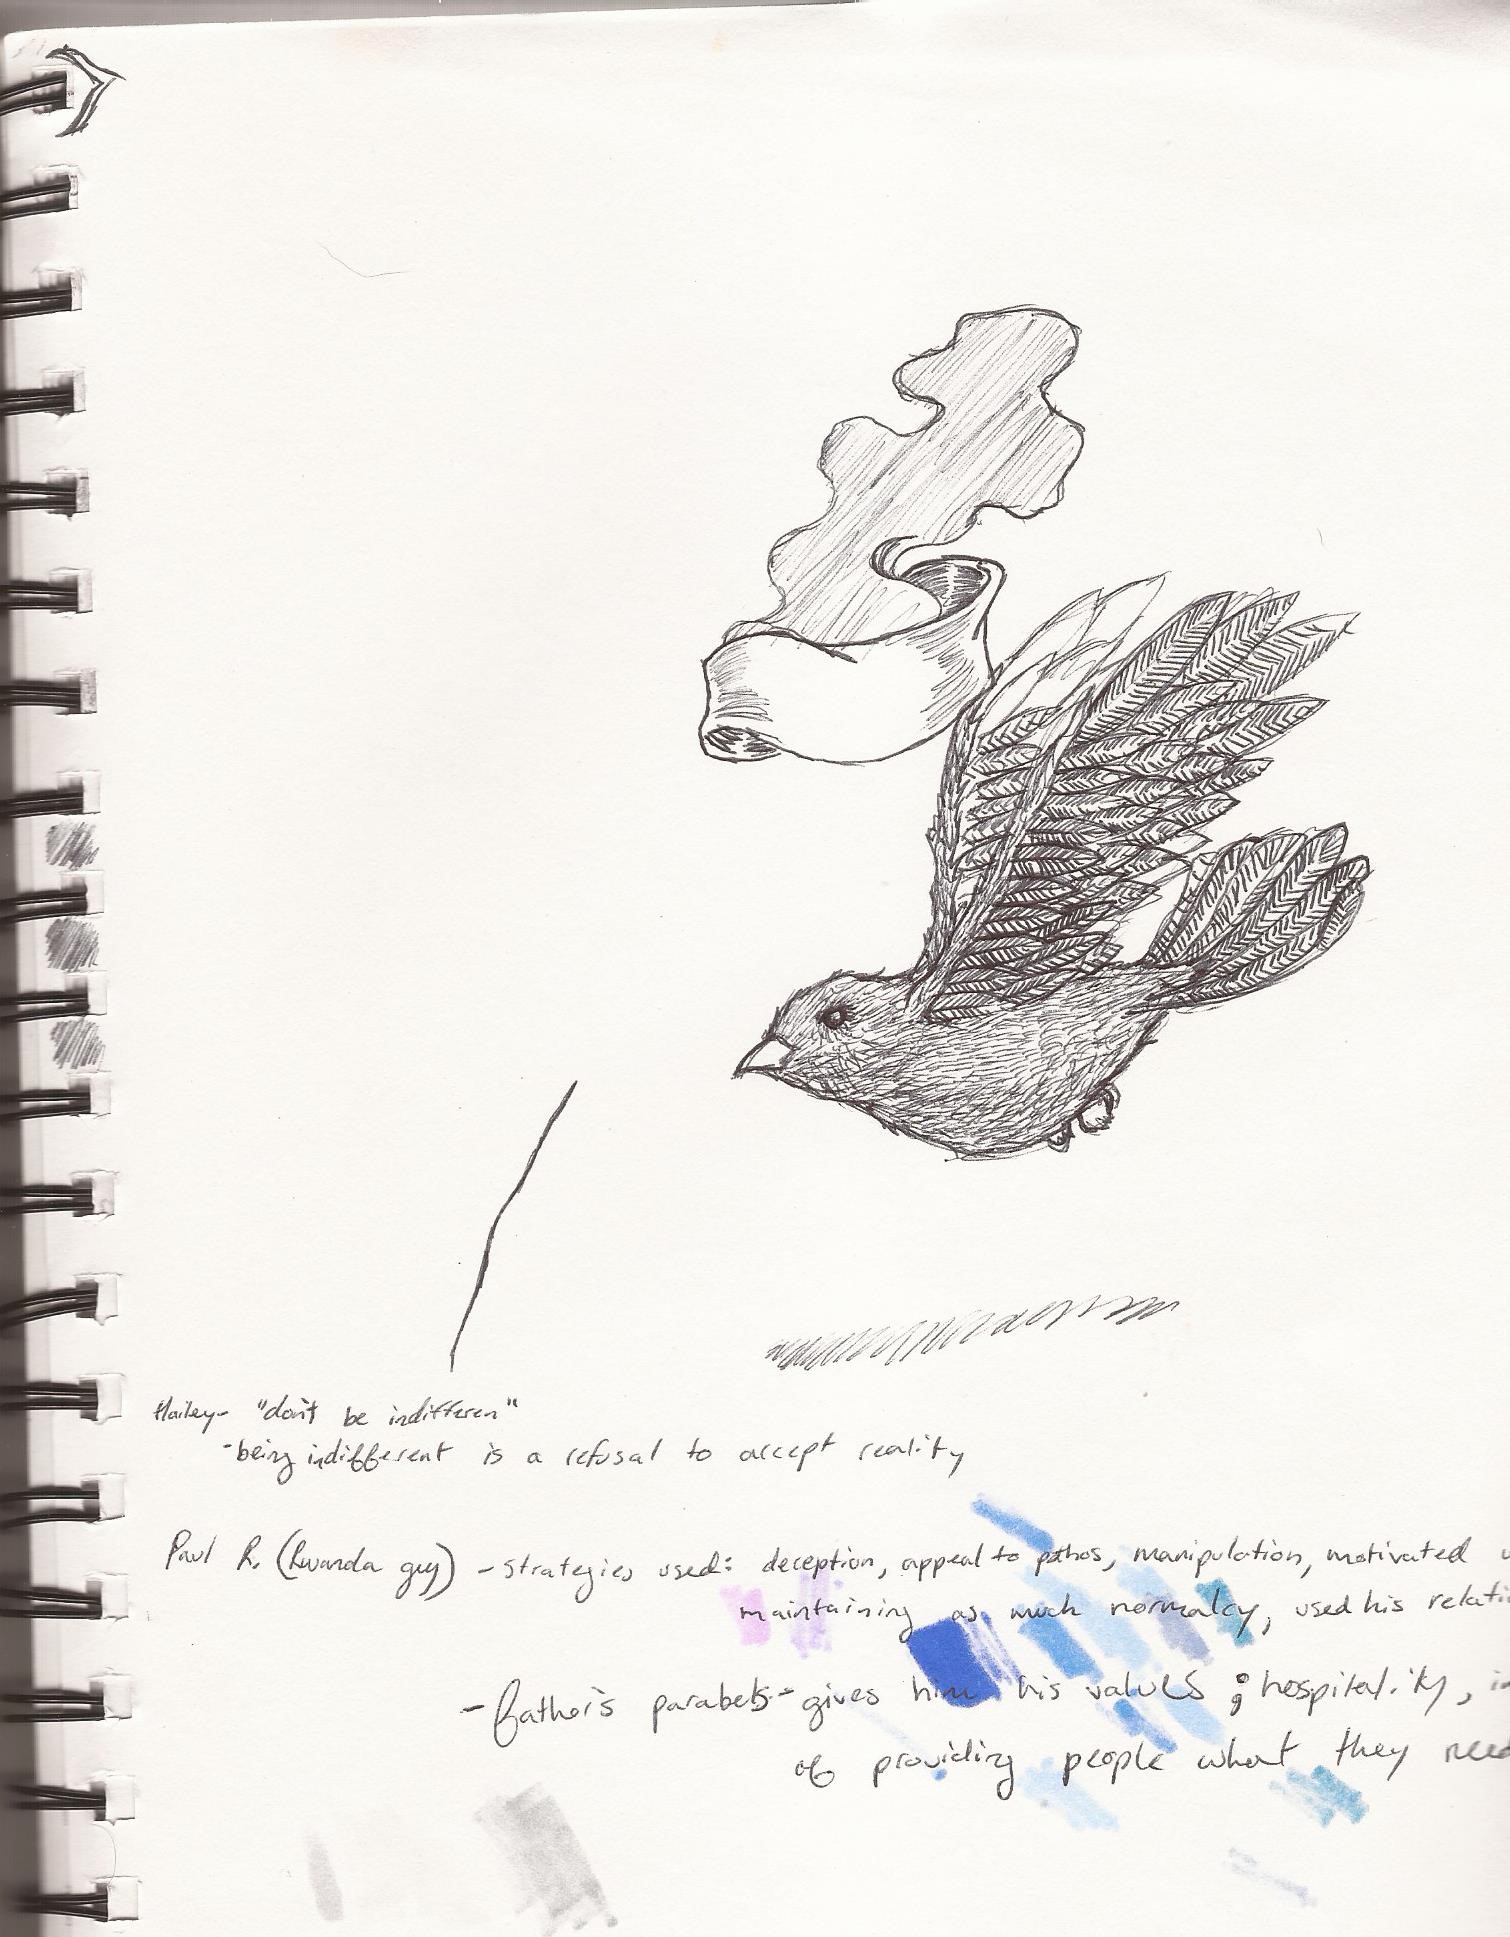 Hailey- "don't be indifferen"
-being indifferent is a refusal to accept reality
Paul R. (Rwanda guy) - strategies used: deception, appeal to pathos, manipulation, motivated
maintaining as much normalcy, used his relati
- father's parabels - gives him his values ; hospitality,
of providing people what they need